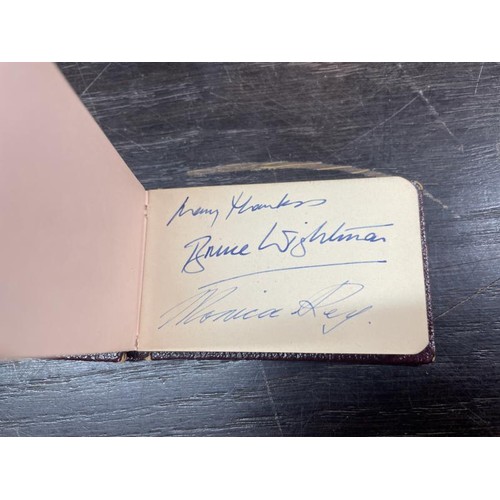 Many thanks
Bruce Wightman
Monica Rey.